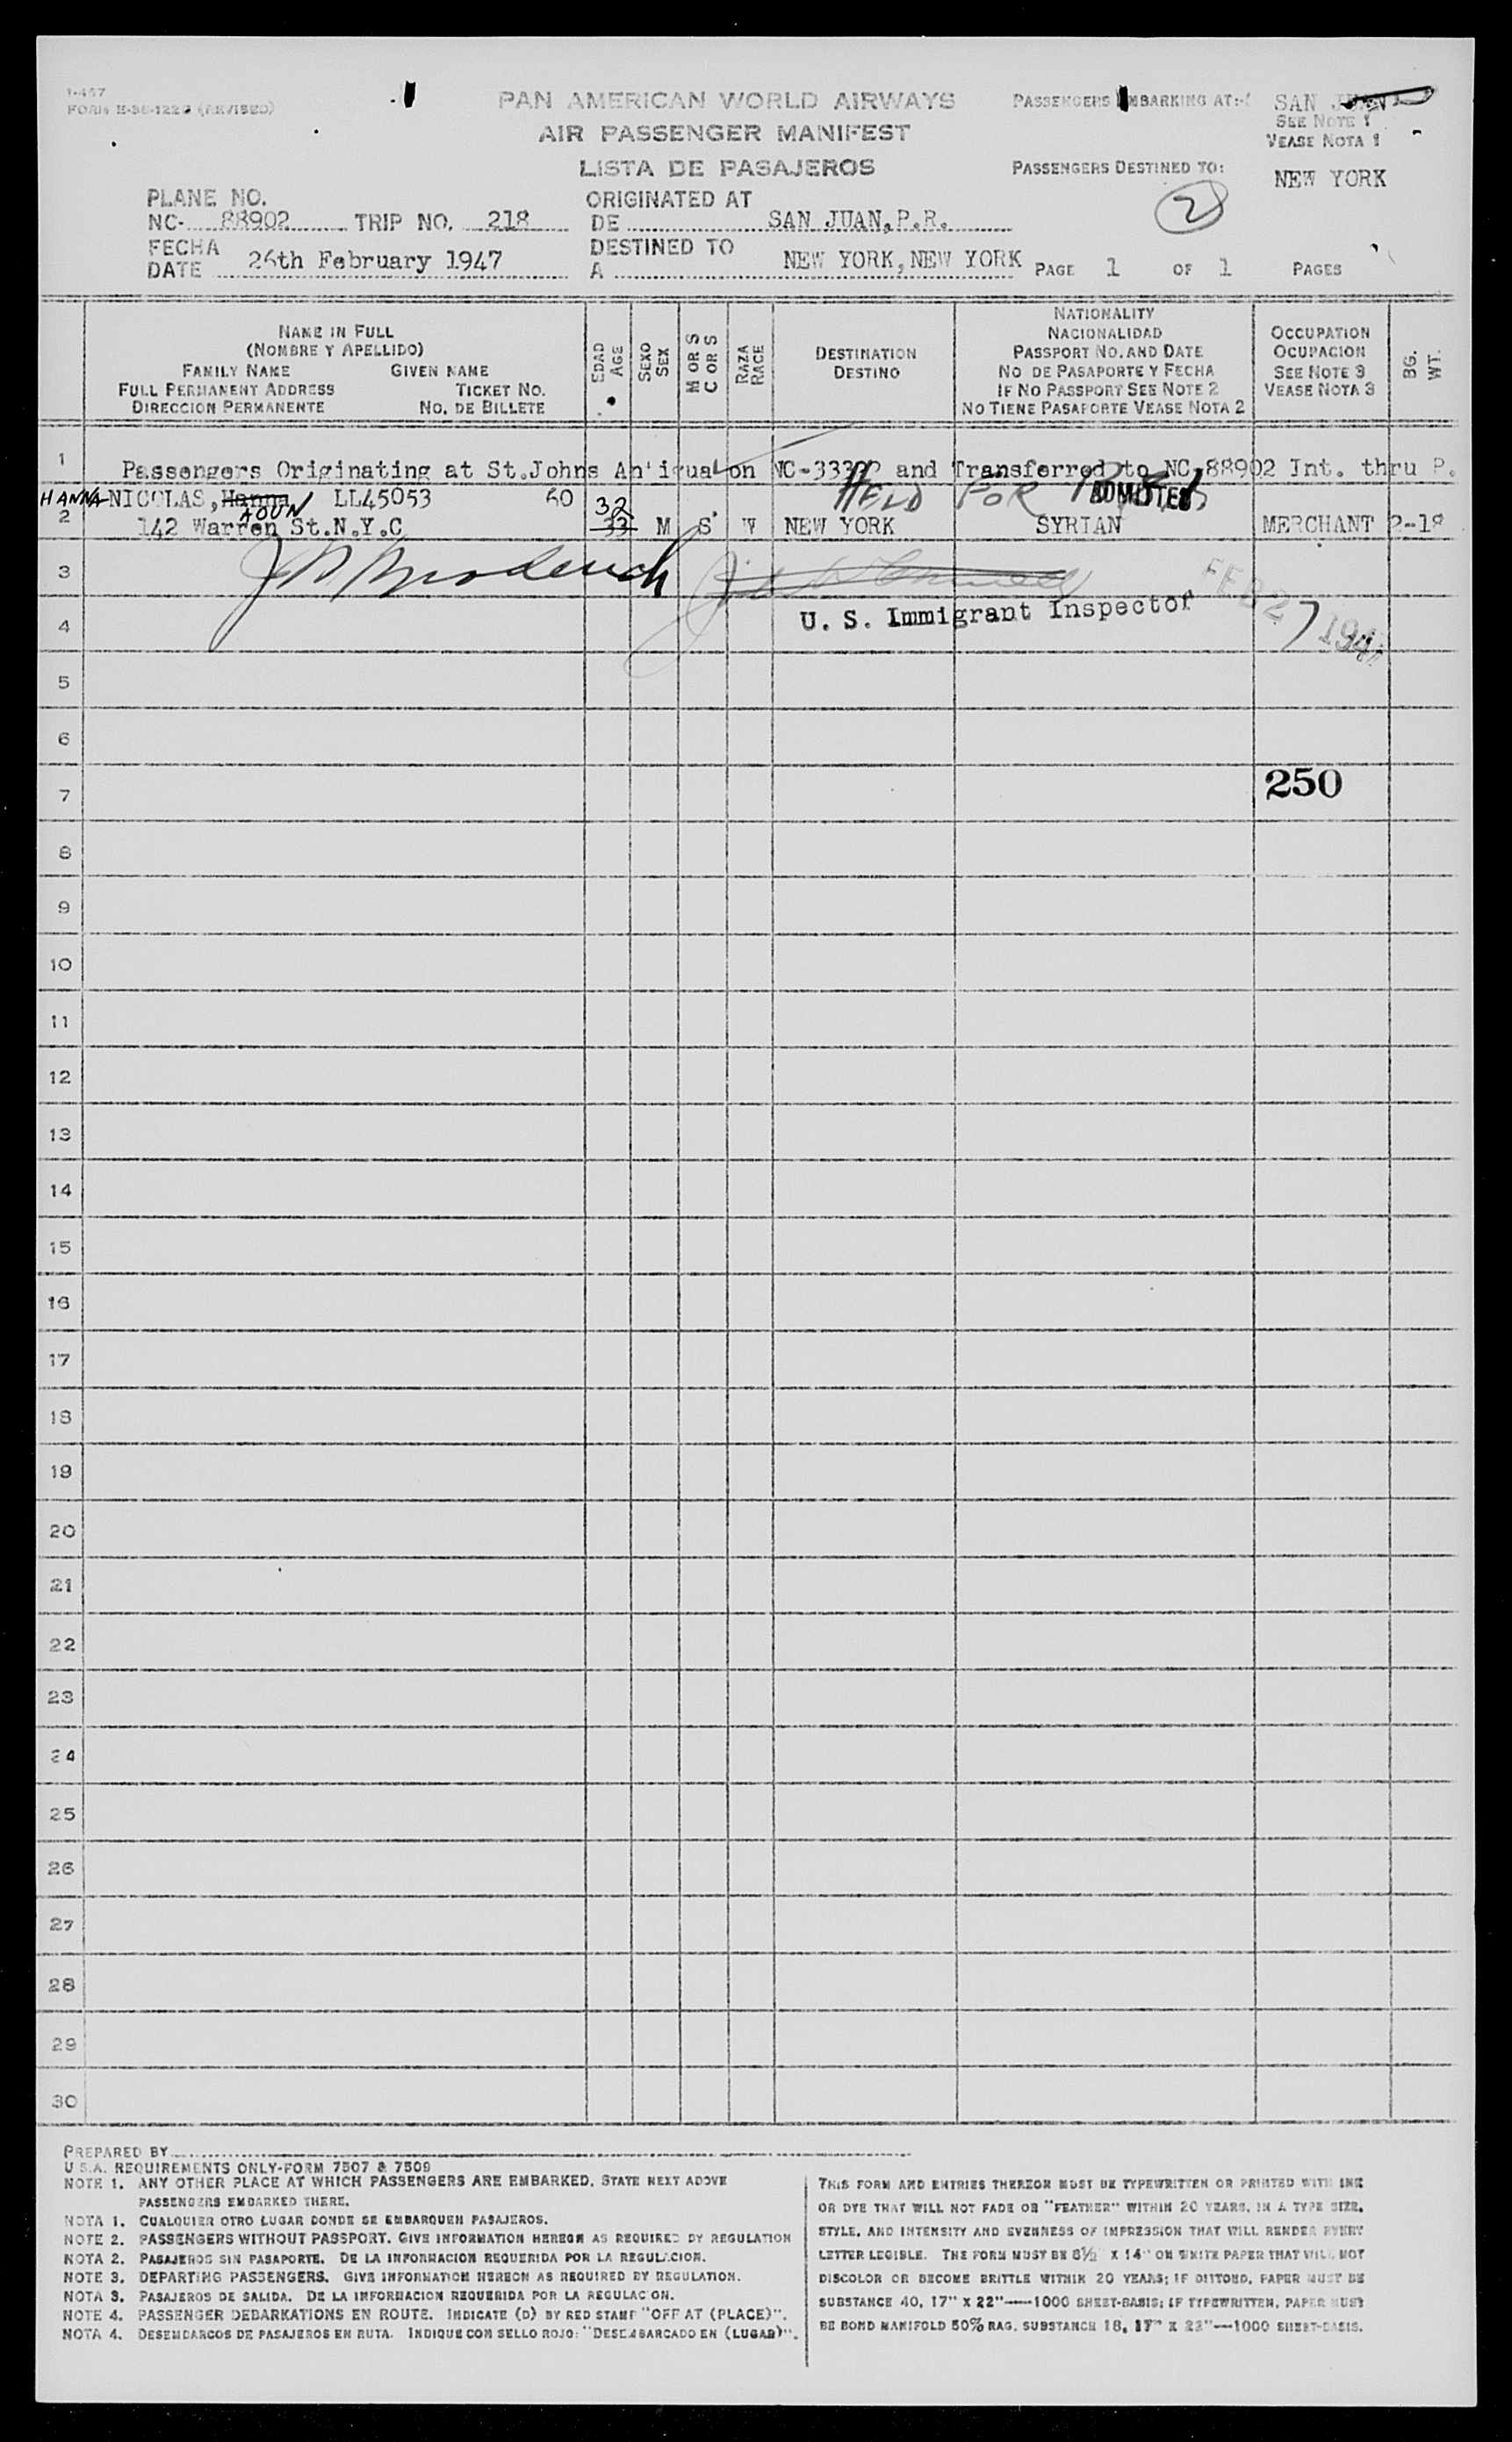 I-457
FORM E-36-122G (REVISED)
PAN AMERICAN WORLD AIRWAYS
AIR PASSENGER MANIFEST
LISTA DE PASAJEROS
PASSENGERS EMBARKING AT:-
SAN JUAN
SEE NOTE 1
VEASE NOTA 1
PASSENGERS DESTINED TO:
NEW YORK
2
PLANE NO.
NC- 88902 TRIP NO. 218
ORIGINATED AT
DE SAN JUAN, P.R.
FECHA
DATE 26th February 1947
DESTINED TO
A NEW YORK, NEW YORK
PAGE 1 OF 1 PAGES
NAME IN FULL
(NOMBRE Y APELLIDO)
FAMILY NAME GIVEN NAME
FULL PERMANENT ADDRESS TICKET NO.
DIRECCION PERMANENTE NO. DE BILLETE
EDAD
AGE
SEXO
SEX
M OR S
C OR S
RAZA
RACE
DESTINATION
DESTINO
NATIONALITY
NACIONALIDAD
PASSPORT NO. AND DATE
NO DE PASAPORTE Y FECHA
IF NO PASSPORT SEE NOTE 2
NO TIENE PASAPORTE VEASE NOTA 2
OCCUPATION
OCUPACION
SEE NOTE 3
VEASE NOTA 3
BG.
WT.
1 Passengers Originating at St.Johns An'igua on and Transferred to NC 88902 Int. thru P.
HELD FOR ADMITTED
HANNA NICOLAS, Hanna LL45053 60
AOUN
32
2 142 Warren St.N.Y.C 33 M S W NEW YORK SYRIAN MERCHANT 2-18
3
U. S. Immigrant Inspector
FEB 27 1947
4
5
6
7 250
8
9
10
11
12
13
14
15
16
17
18
19
20
21
22
23
24
25
26
27
28
29
30
PREPARED BY
U.S.A. REQUIREMENTS ONLY-FORM 7507 & 7509
NOTE 1. ANY OTHER PLACE AT WHICH PASSENGERS ARE EMBARKED. STATE NEXT ABOVE
PASSENGERS EMBARKED THERE.
NOTA 1. CUALQUIER OTRO LUGAR DONDE SE EMBARQUEN PASAJEROS.
NOTE 2. PASSENGERS WITHOUT PASSPORT. GIVE INFORMATION HEREON AS REQUIRED BY REGULATION
NOTA 2. PASAJEROS SIN PASAPORTE. DE LA INFORMACION REQUERIDA POR LA REGULACION.
NOTE 3. DEPARTING PASSENGERS. GIVE INFORMATION HEREON AS REQUIRED BY REGULATION.
NOTA 3. PASAJEROS DE SALIDA. DE LA INFORMACION REQUERIDA POR LA REGULACION.
NOTE 4. PASSENGER DEBARKATIONS EN ROUTE. INDICATE (D) BY RED STAMP "OFF AT (PLACE)".
NOTA 4. DESEMBARCOS DE PASAJEROS EN RUTA. INDIQUE CON SELLO ROJO: "DESEMBARCADO EN (LUGAR)".
THIS FORM AND ENTRIES THEREON MUST BE TYPEWRITTEN OR PRINTED WITH INK
OR DYE THAT WILL NOT FADE OR "FEATHER" WITHIN 20 YEARS, IN A TYPE SIZE,
STYLE, AND INTENSITY AND EVENNESS OF IMPRESSION THAT WILL RENDER EVERY
LETTER LEGIBLE. THE FORM MUST BE 8½" X 14" ON WHITE PAPER THAT WILL NOT
DISCOLOR OR BECOME BRITTLE WITHIN 20 YEARS; IF DITTOED, PAPER MUST BE
SUBSTANCE 40, 17" X 22"—1000 SHEET-BASIS; IF TYPEWRITTEN, PAPER MUST
BE BOND MANIFOLD 50% RAG. SUBSTANCE 18, 17" X 22"—1000 SHEET-BASIS.